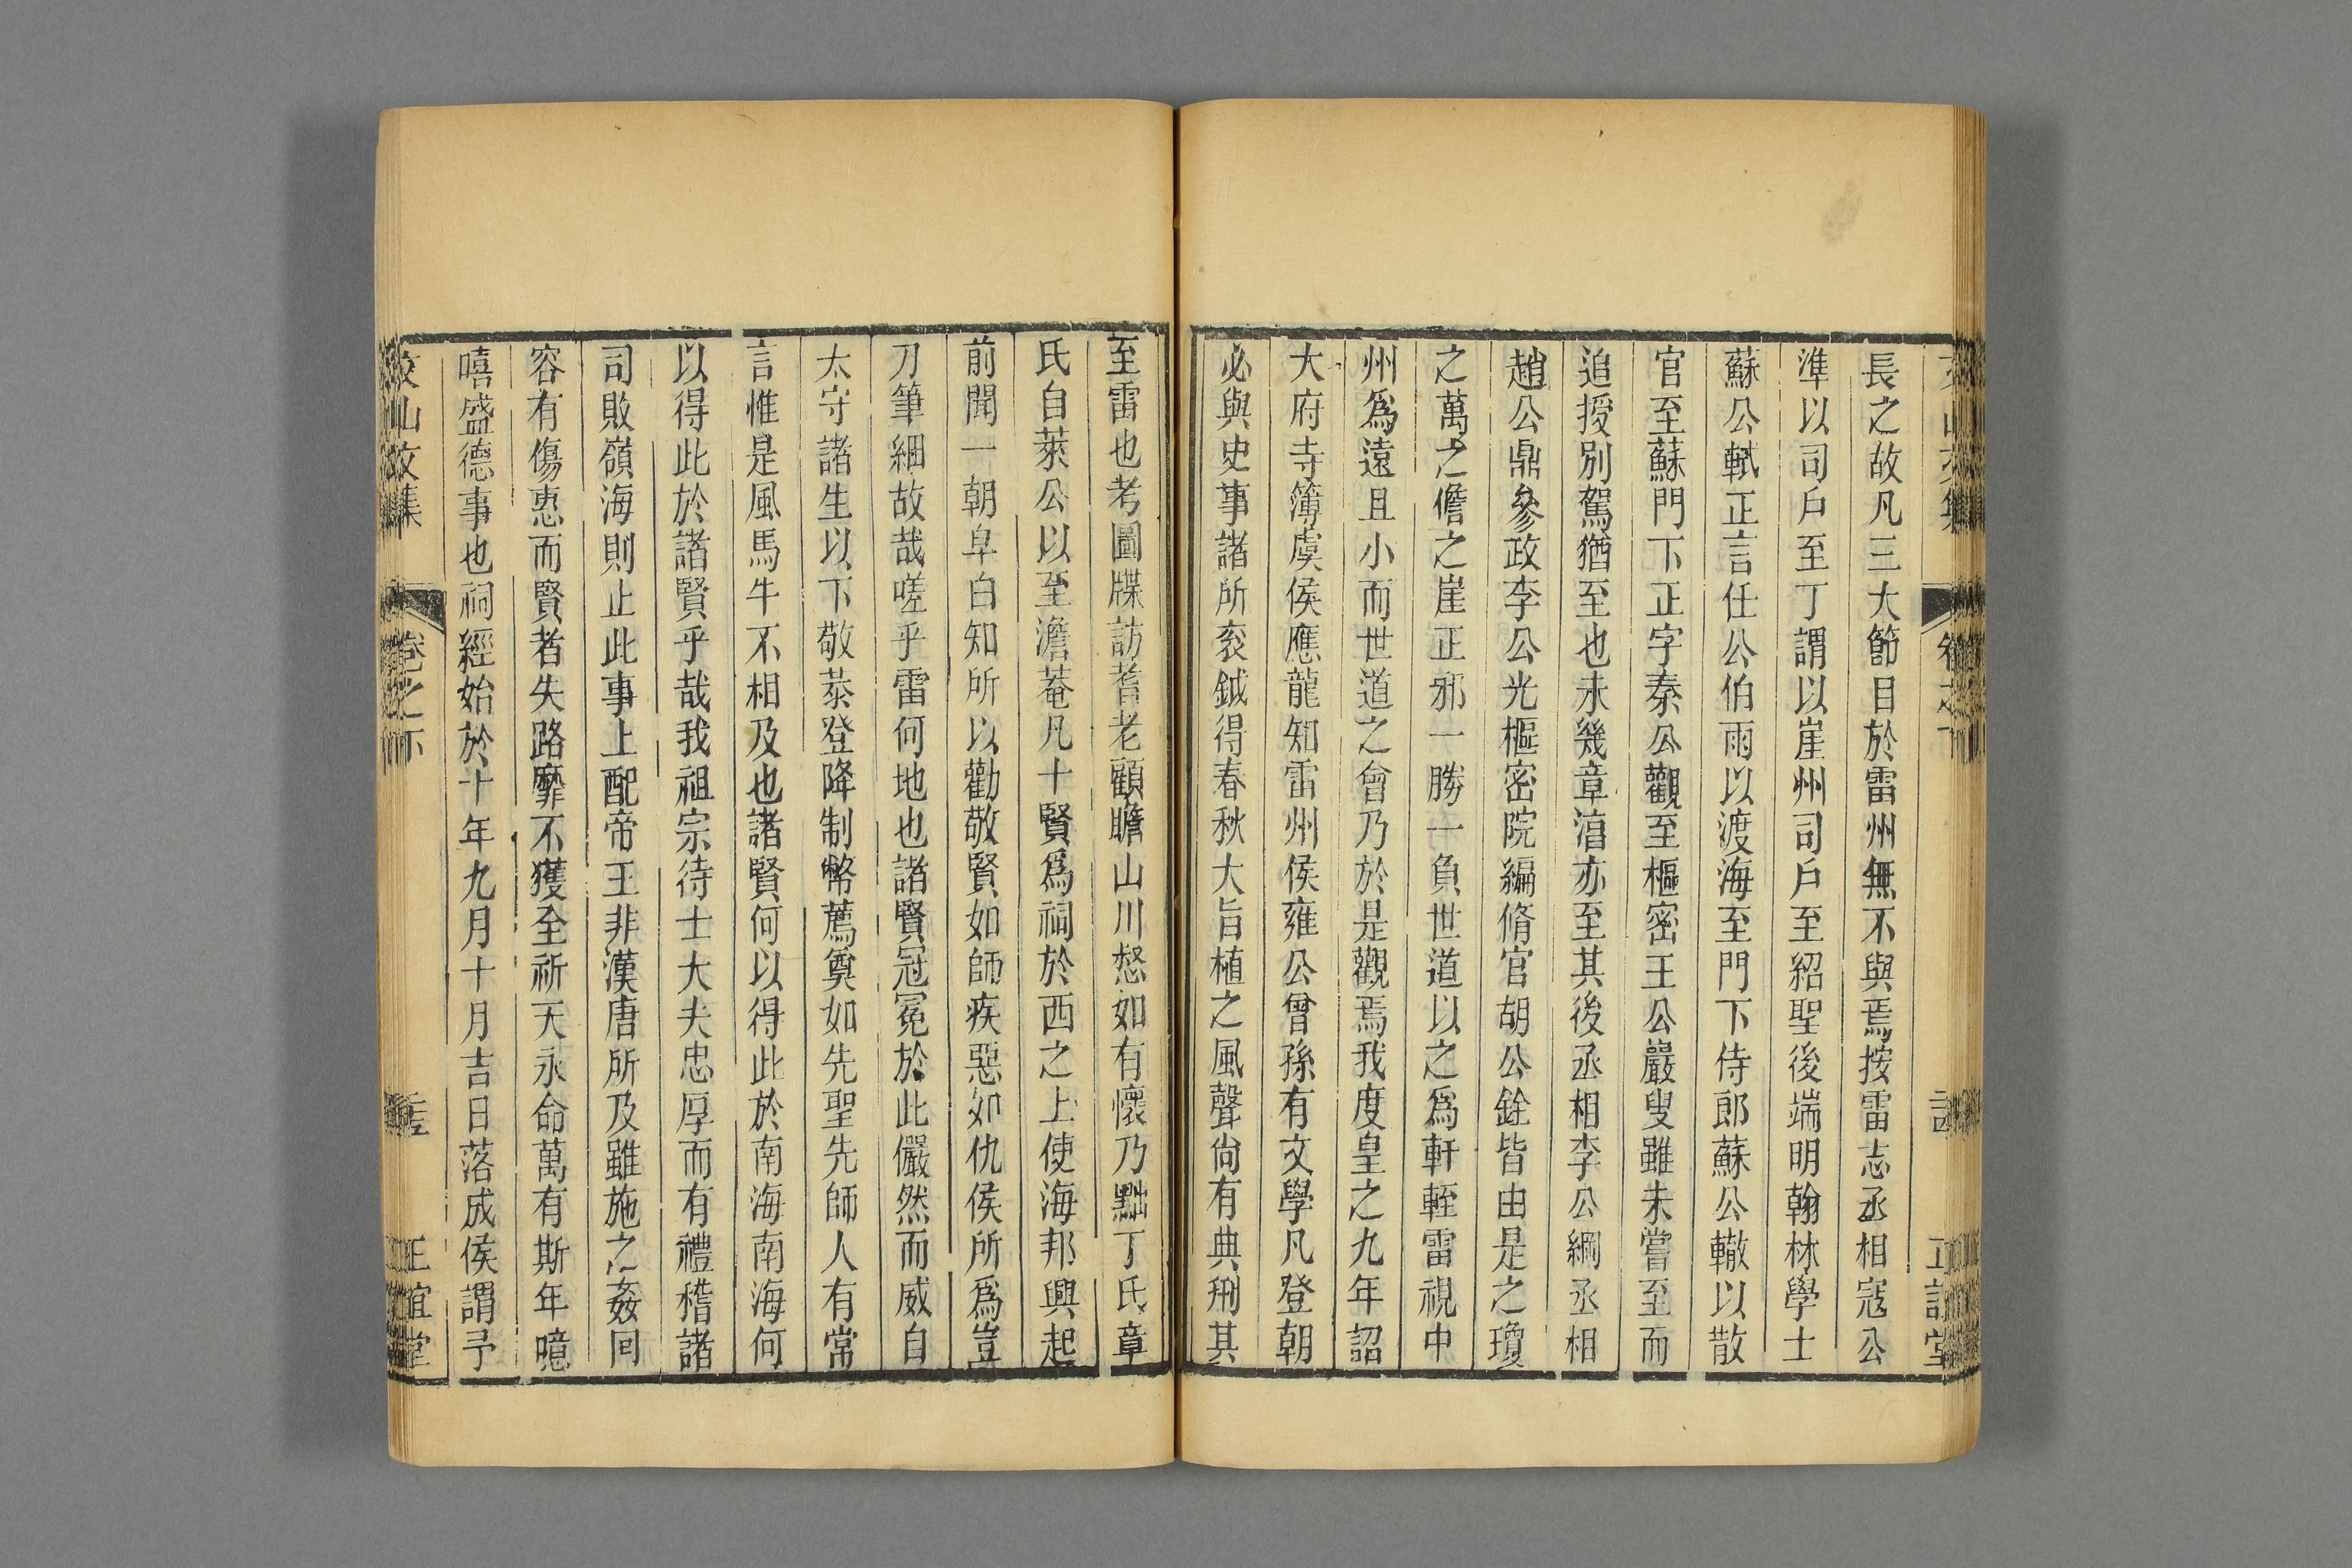 長之故凡三大節目於雷州無不與焉按雷志丞相寇公
準以司戶至丁謂以崖州司戶至紹聖後端明翰林學士
蘇公軾正言任公伯雨以渡海至門下侍郎蘇公轍以散
官至蘇門下正字秦公觀至樞密王公巖叟雖未嘗至而
追授別駕猶至也未幾章湻亦至其後丞相李公綱丞相
趙公鼎參政李公光樞密院編脩官胡公銓皆由是之瓊
之萬之儋之崖正邪一勝一負世道以之爲軒輊雷視中
州爲遠且小而世道之會乃於是觀焉我度皇之九年詔
大府寺簿虞侯應龍知雷州侯雍公曾孫有文學凡登朝
必與史事諸所衮鉞得春秋大旨植之風聲尙有典刑其
至雷也考圖牒訪耆老顧瞻山川愁如有懷乃黜丁氏章
氏自萊公以至澹菴凡十賢爲祠於西之上使海邦興起
前聞一朝皁白知所以勸敬賢如師疾惡如仇侯所爲豈
刀筆細故哉嗟乎雷何地也諸賢冠冕於此儼然而威自
太守諸生以下敬恭登降制幣薦奠如先聖先師人有常
言惟是風馬牛不相及也諸賢何以得此於南海南海何
以得此於諸賢乎哉我祖宗待士大夫忠厚而有禮稽諸
司敗嶺海則止此事上配帝王非漢唐所及雖施之姦囘
容有傷惠而賢者失路靡不獲全祈天永命萬有斯年噫
嘻盛德事也祠經始於十年九月十月吉日落成侯謂予
文山文集
卷之下
正誼堂